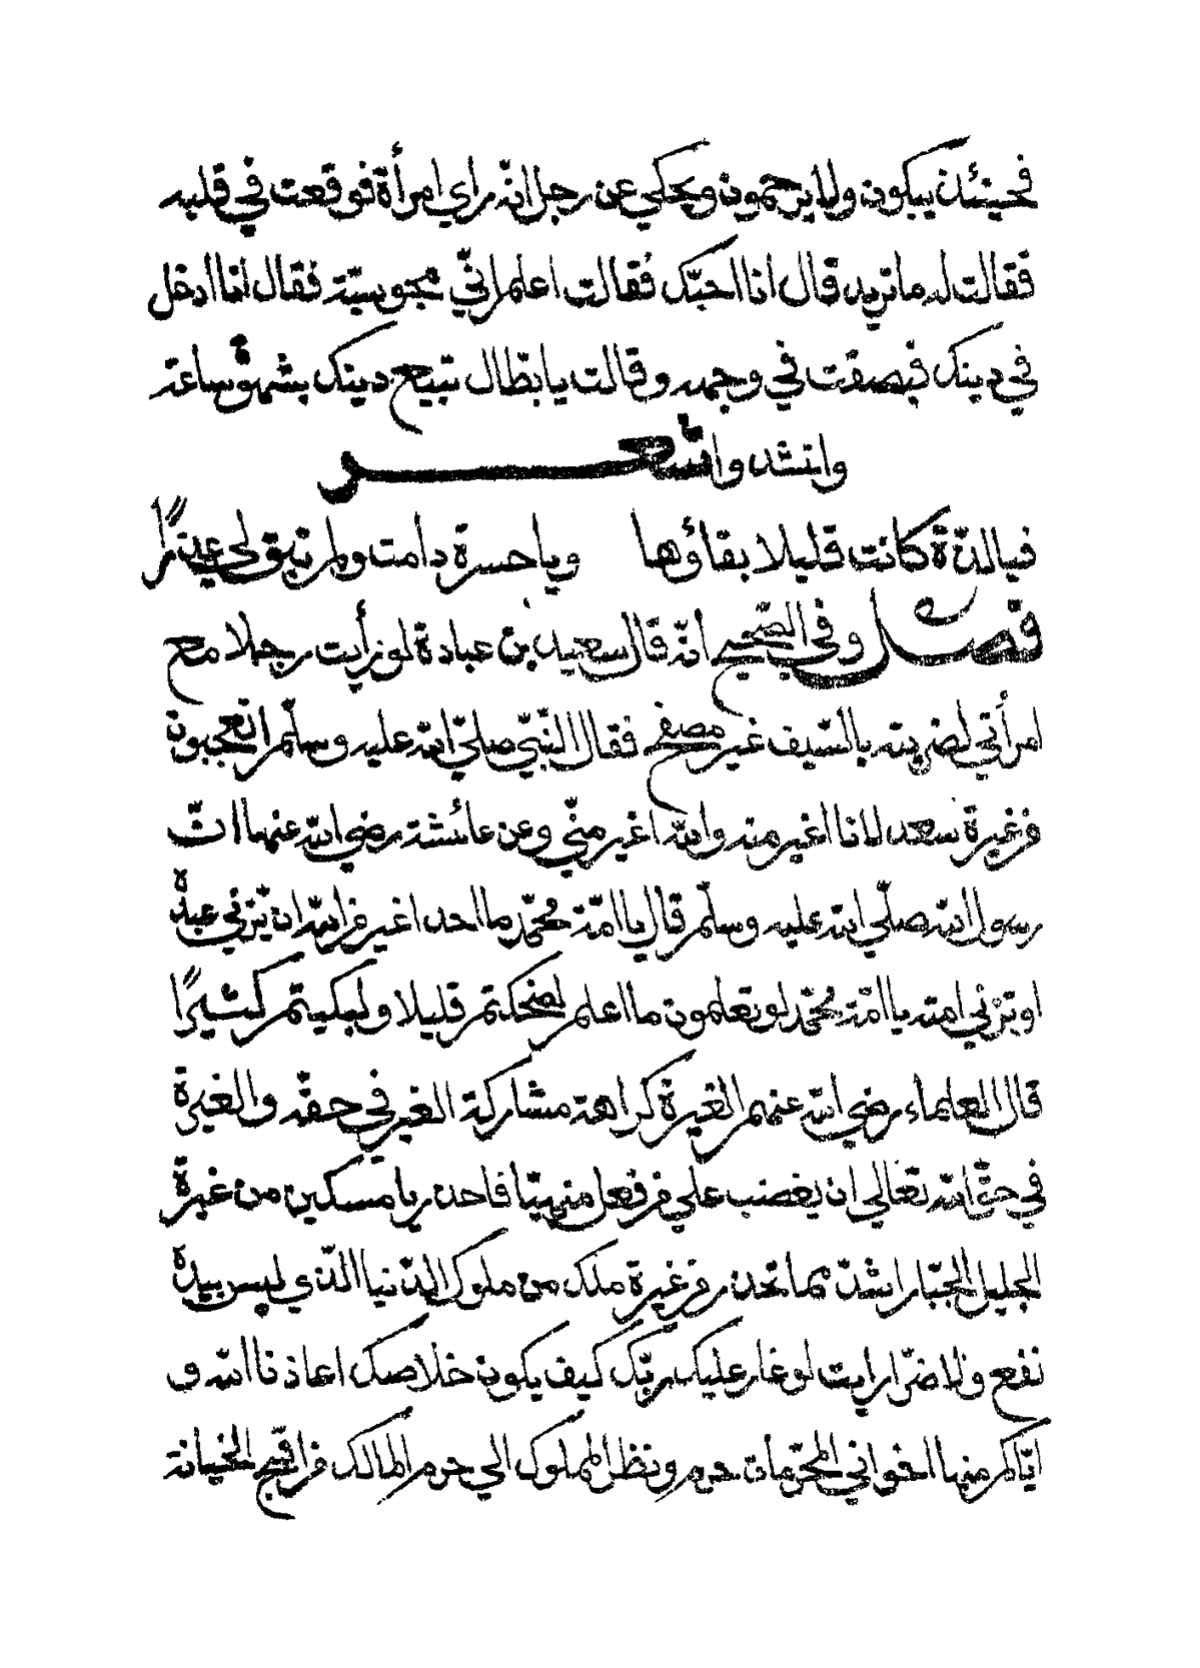 فحينئذ يبكون ولا يرحمون ويحكي عن رجل انّه راي امرأة فوقعت في قلبه
فقالت له ما تريد قال انا احبّك فقالت اعلم انّي مجوسيّة فقال انا ادخل
في دينك فبصقت في وجهه وقالت يا بطّال تبيع دينك بشهوة ساعة
وانشدوا شعر
فيا لذّة كانت قليلا بقاؤها ويا حسرة دامت ولم تبق لي عذرًا
فصل وفي الصّحيح انّه قال سعيد بن عبادة لو رأيت رجلا مع
امرأتي لضربته بالسّيف غير مصفح فقال النّبيّ صلّي الله عليه وسلّم اتعجبون
من غيرة سعد لانا اغير منه والله اغير منّي وعن عائشة رضي الله عنها انّ
رسول الله صلّي الله عليه وسلّم قال يا امّة محمّد ما احد اغير من الله ان يّزني عبده
او تزني امته يا امّة محمّد لو تعلمون ما اعلم لضحكتم قليلا ولبكيتم كثيرًا
قال العلماء رضي الله عنهم الغيرة كراهة مشاركة الغير في حقّه والغيرة
في حقّ الله تعالي ان يغضب علي من فعل منهيّا فاحذر يا مسكين من غيرة
الجليل الجبّار اشدّ مما تحذر من غيرة ملك من ملوك الدّنيا الذّي ليس بيده
نفع ولا ضرّ ارايت لو غار عليك ربّك كيف يكون خلاصك اعاذنا الله و
ايّاكم منها اخواني المحرّمات حرم ونظر المملوك الي حرم المالك من اقبح الخيانة